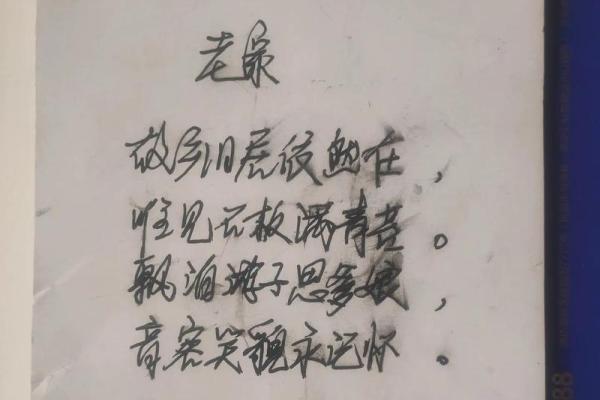 老泉
故乡旧居依然在，
唯见石板满青苔。
飘泊游子思爹娘，
音容笑貌永记怀。
88